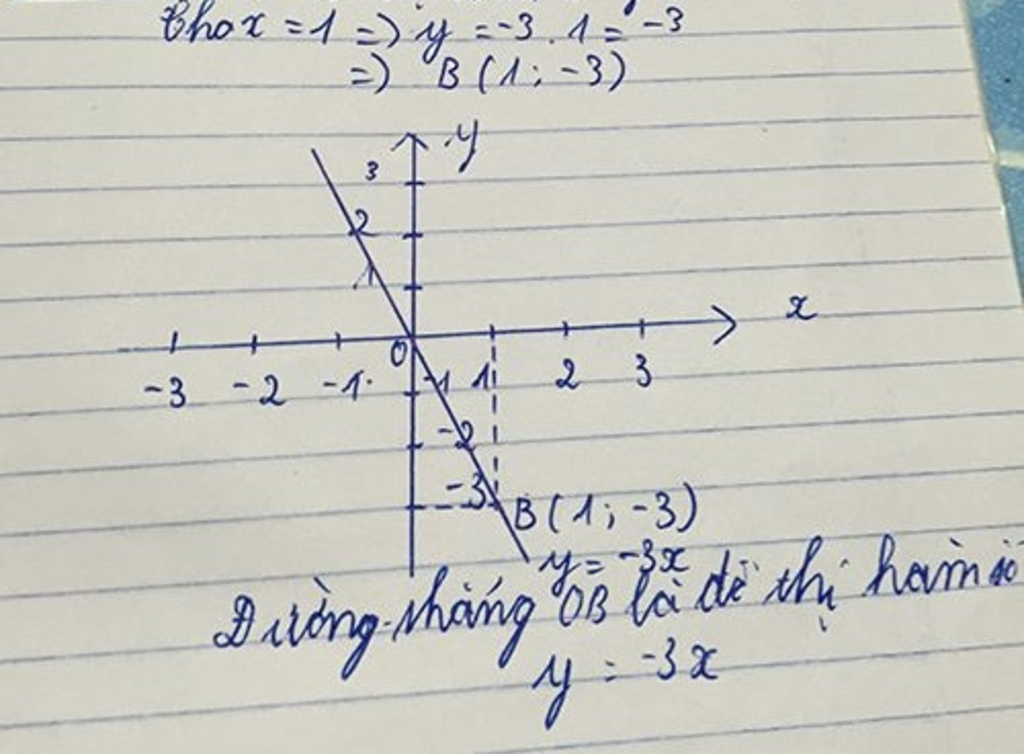 Cho x = 1 => y = -3 . 1 = -3
=> B (1; -3)
y
3
2
1
x
O
-3 -2 -1 1 2 3
-1
-2
-3
B (1; -3)
y = -3x
Đường thẳng OB là đồ thị hàm số
y = -3x